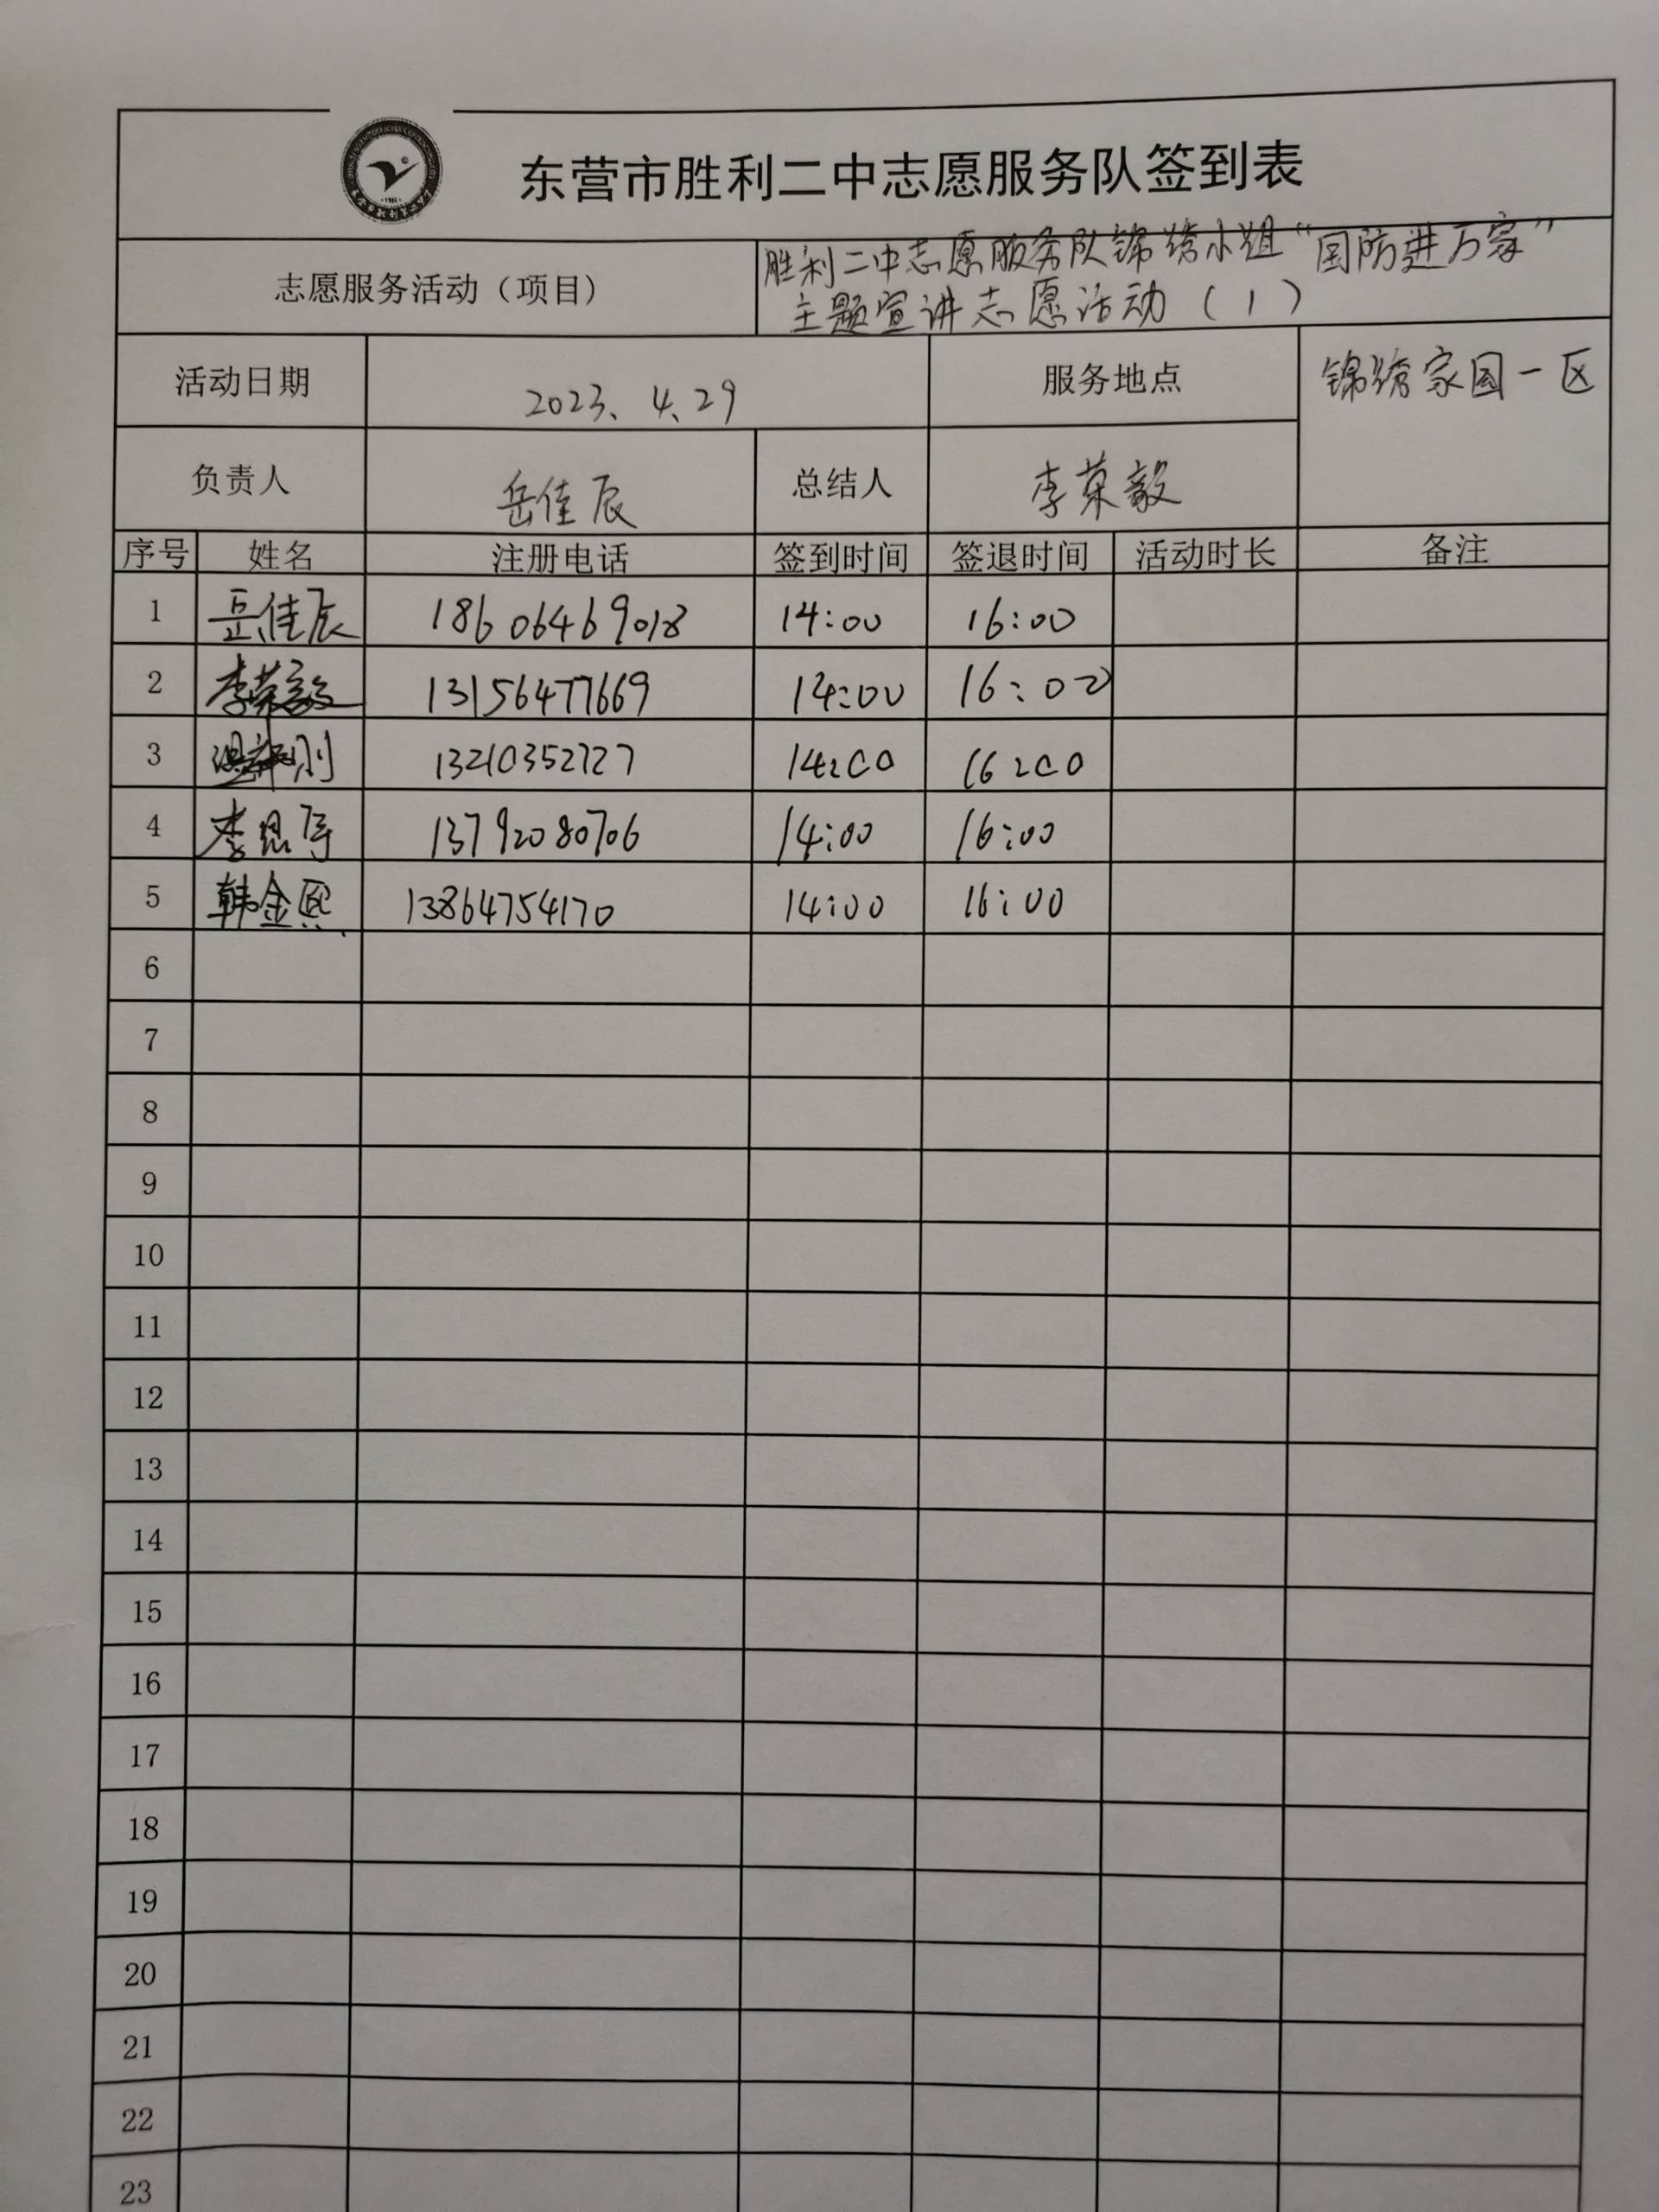 东营市胜利二中志愿服务队签到表
志愿服务活动（项目） 胜利二中志愿服务队锦绣小组“国防进万家”
主题宣讲志愿活动（1）
活动日期 2023、4、29 服务地点 锦绣家园一区
负责人 岳佳辰 总结人 李荣毅
序号 姓名 注册电话 签到时间 签退时间 活动时长 备注
1 岳佳辰 18606469018 14:00 16:00
2 李荣毅 13156477669 14:00 16:00
3 13210352727 14:00 16:00
4 李思 13792080706 14:00 16:00
5 韩金熙 13864754170 14:00 16:00
6
7
8
9
10
11
12
13
14
15
16
17
18
19
20
21
22
23